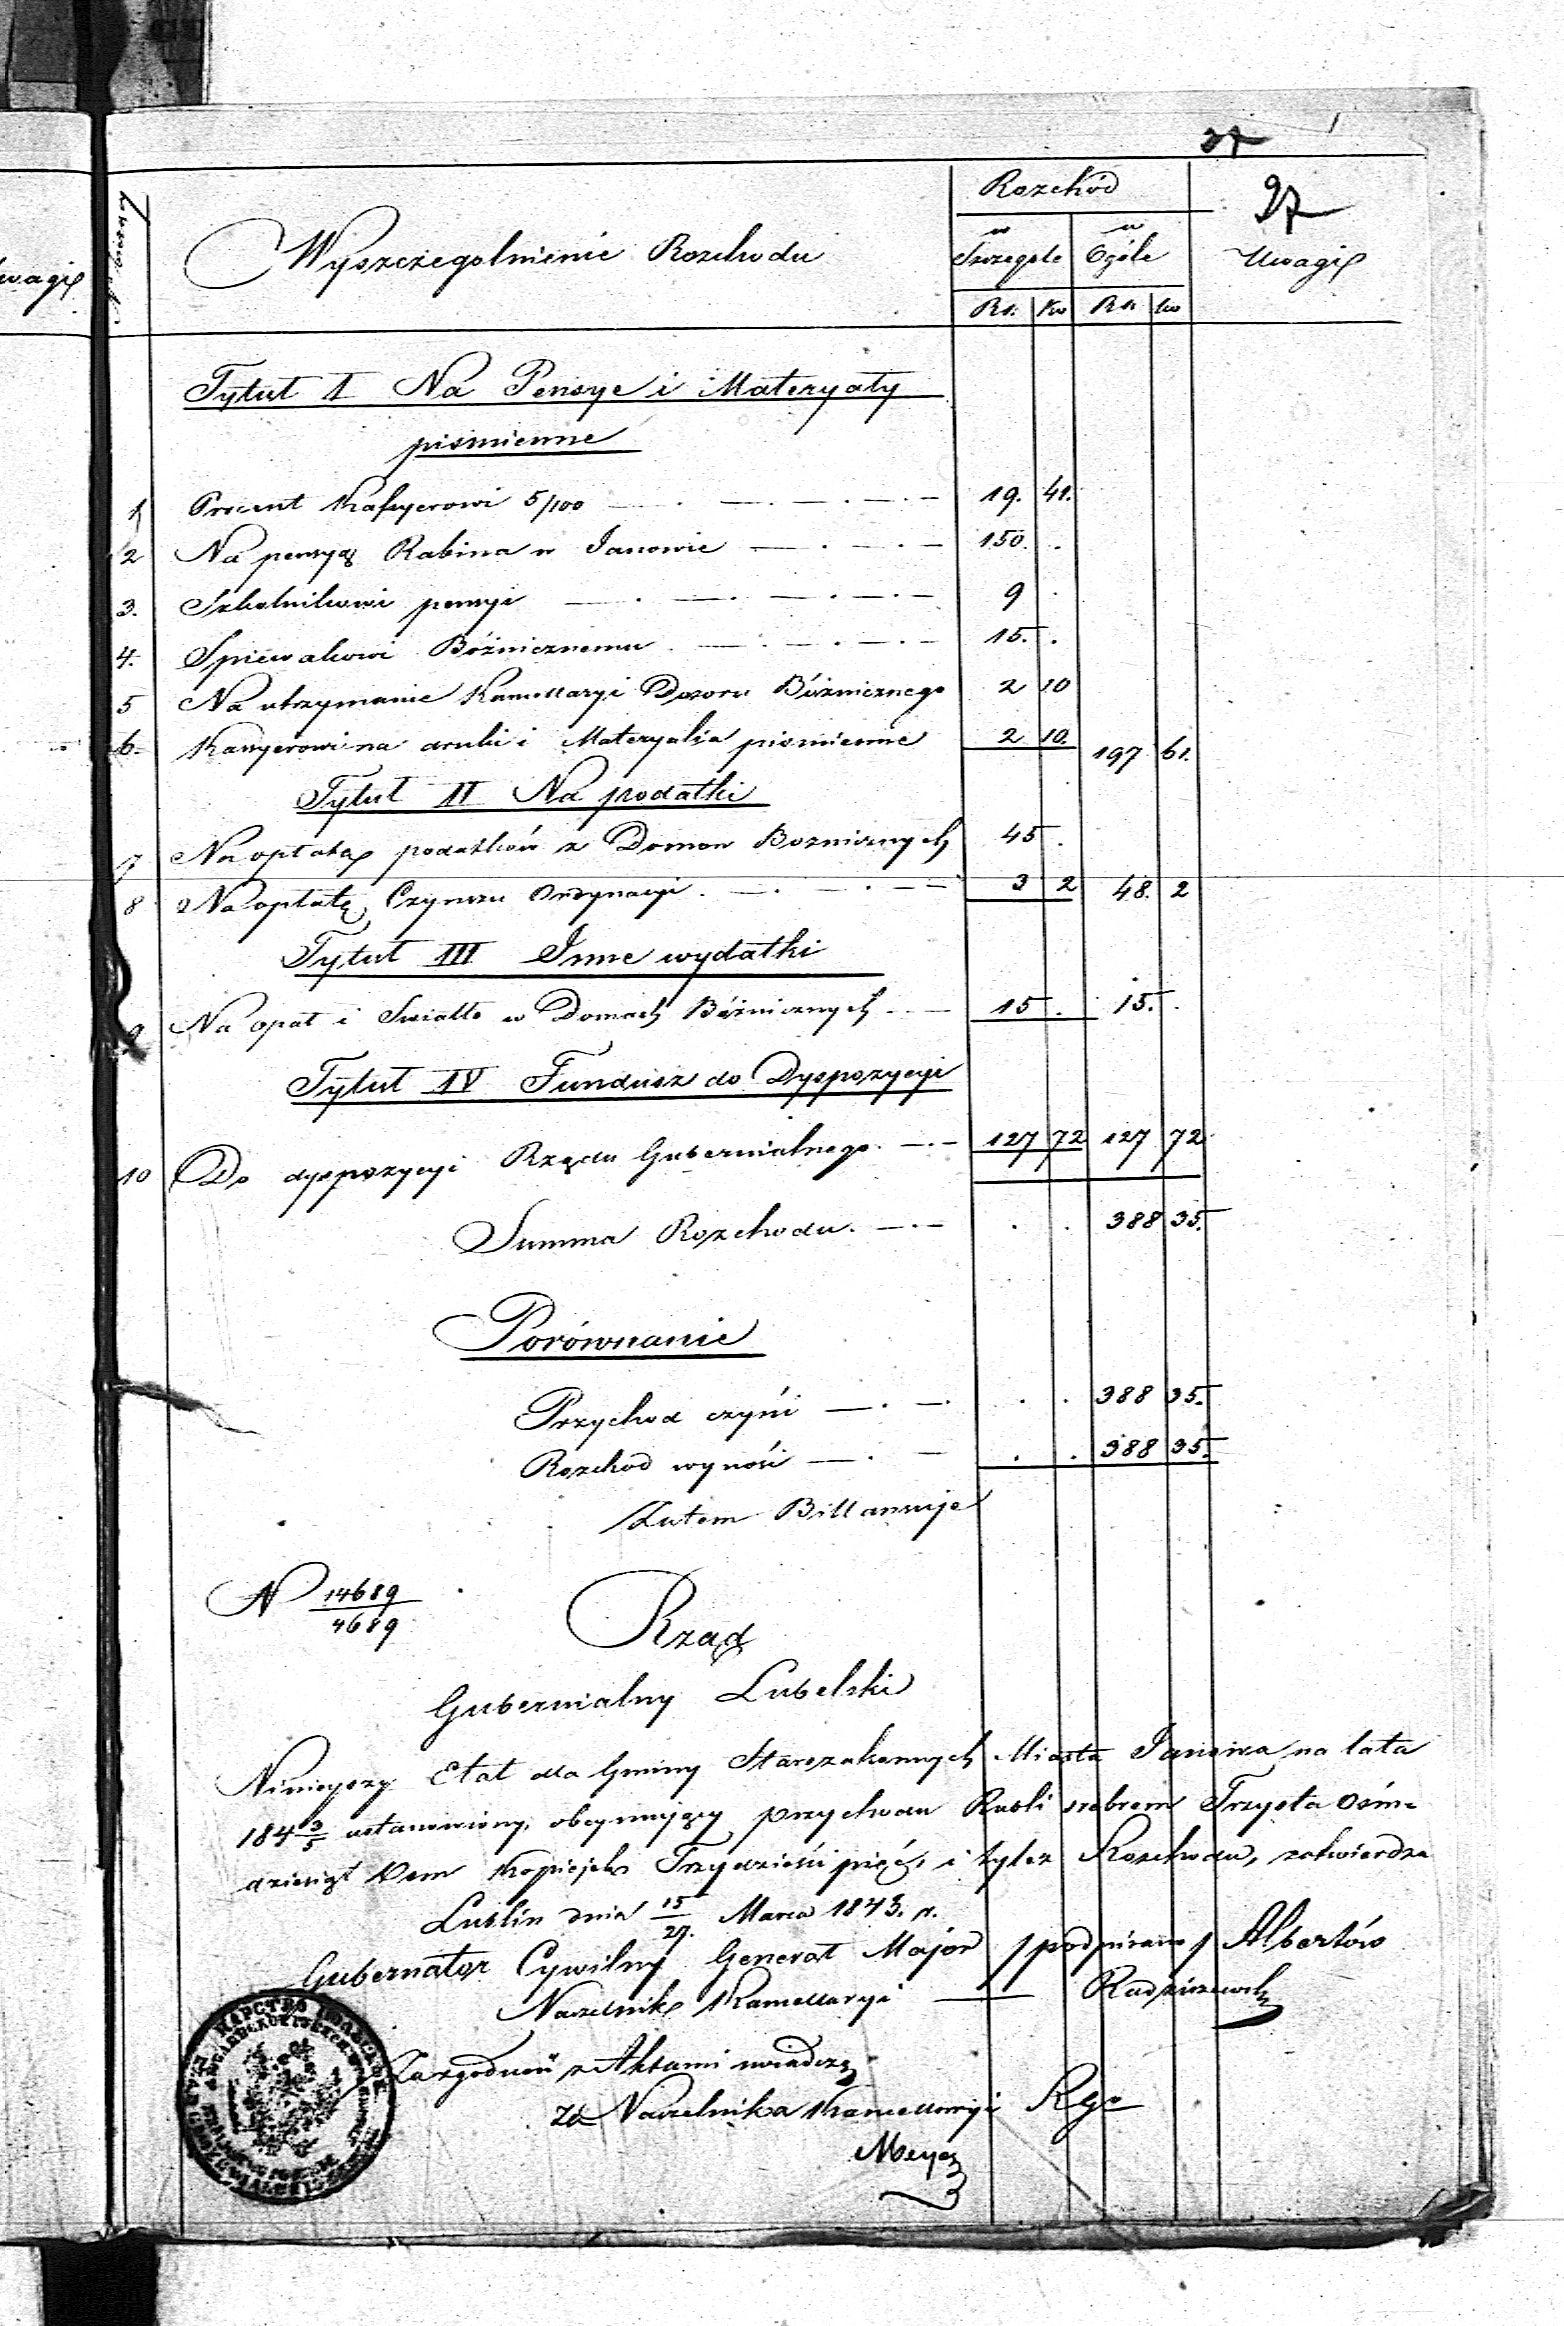 27
Rozchód
27
Wyszczegolnienie Rozchodu
w Szczegole
w Ogóle
Uwagi
Rs. Ko Rs. Ko
Tytuł I Na Pensye i Materyały
piśmienne
1 Procent Kassyerowi 5/100 19. 41.
2 Na pensyą Rabina w Janowie 150. .
3. Szkolnikowi pensyi 9 .
4. Spiewakowi Bóżnicznemu 15. .
5 Na utrzymanie Kancellaryi Dozoru Bóżnicznego 2 10
6. Kassyerowi na druki i Materyalia piśmienne 2 10. 197 61.
Tytuł II Na podatki
7 Na opłatę podatków z Domow Boznicznych 45 .
8 Na opłatę Czynszu Ordynacyi 3 2 48. 2
Tytuł III Inne wydatki
9 Na opał i Swiatło w Domach Bóżnicznych 15 . 15. .
Tytuł IV Fundusz do Dyspozycyi
10 Do dyspozycyi Rządu Gubernialnego 127 72 127 72
Summa Rozchodu . . 388 35.
Porównanie
Przychod czyni . . 388 35.
Rozchod wynosi . . 388 35.
Zatem Billansuje
N 14689/4689
Rząd
Gubernialny Lubelski
Ninieyszy Etat dla Gminy Starozakonnych Miasta Janowa na lata
184 3/5 ustanowiony, obeymujący przychodu Rubli srebrem Trzysta Ośm-
dziesiąt Osm Kopiejek Trzydzieści pięć, i tyleż Rozchodu, zatwierdza
Lublin dnia 15/27. Marca 1843. r.
Gubernator Cywilny Generał Major /podpisano/ Albertów
Naczelnik Kancellaryi Radziszewski
Za zgodność z Aktami swiadczę
Za Naczelnika Kancellaryi
Meyer